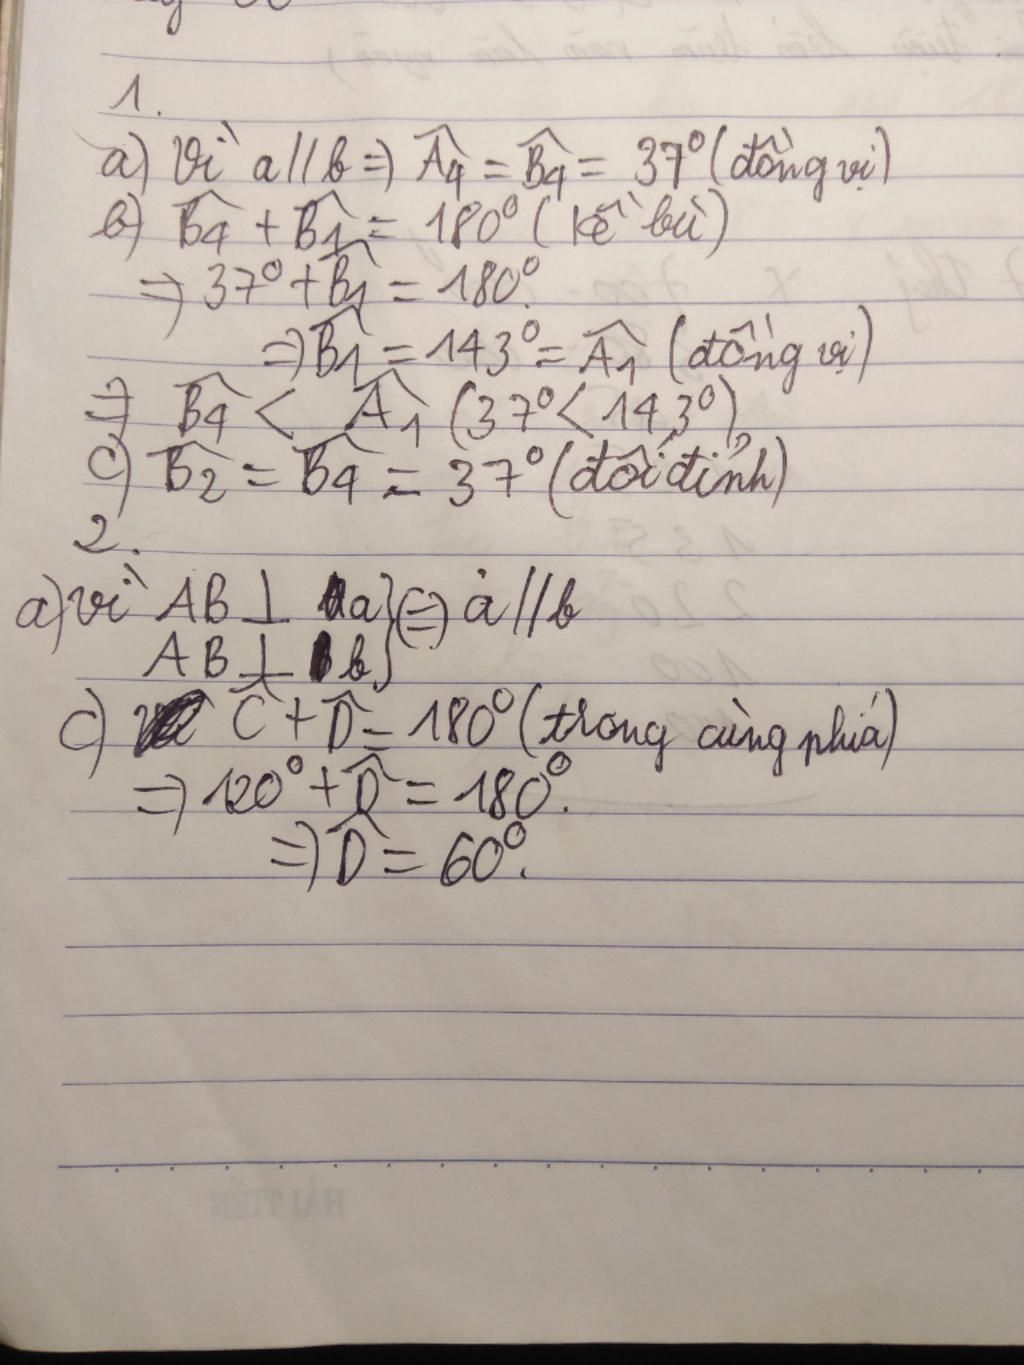 1.
a) Vì a//b => Â4 = B̂4 = 37° (đồng vị)
b) B̂4 + B̂1 = 180° (kề bù)
=> 37° + B̂1 = 180°.
=> B̂1 = 143° = Â1 (đồng vị)
=> B̂4 < Â1 (37° < 143°)
c) B̂2 = B̂4 = 37° (đối đỉnh)
2.
a) vì AB ⊥ a } (=) a//b
AB ⊥ b
c) Ĉ + D̂ = 180° (trong cùng phía)
=> 120° + D̂ = 180°.
=> D̂ = 60°.
HẢI TIẾN